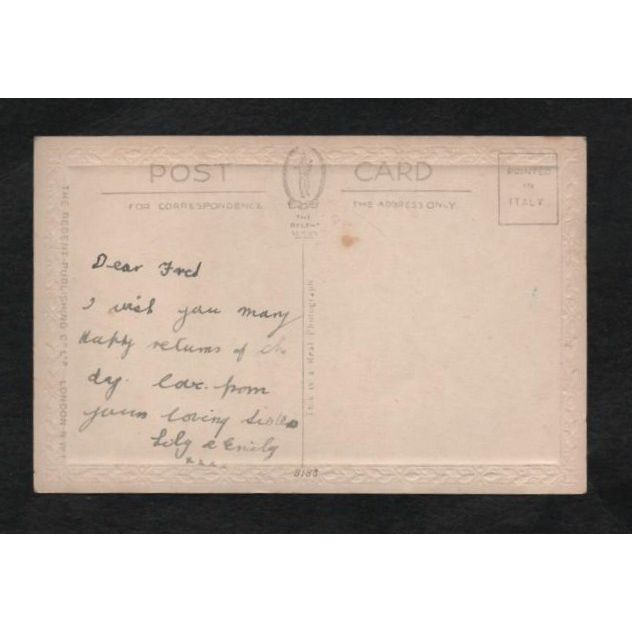 POST CARD
FOR CORRESPONDENCE
THE ADDRESS ONLY
THE
REGENT
SERIES
PRINTED
IN
ITALY
THE REGENT PUBLISHING Co LTD LONDON N.W.1
This is a Real Photograph
Dear Fred
I wish you many
Happy returns of the
day. Love from
yours loving Sisters
Lily & Emily
xxxx
8183